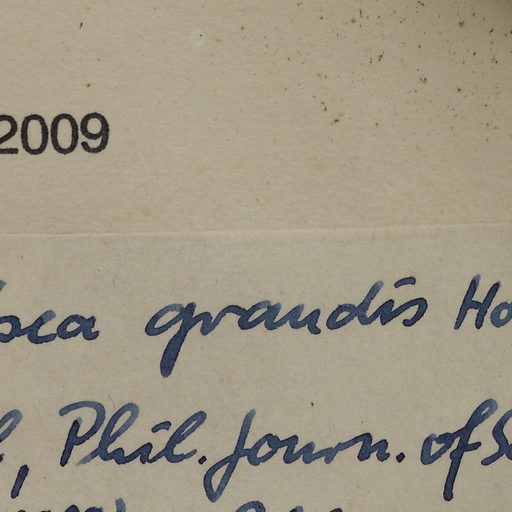 2009
grandis Ho
, Phil. Journ. of S